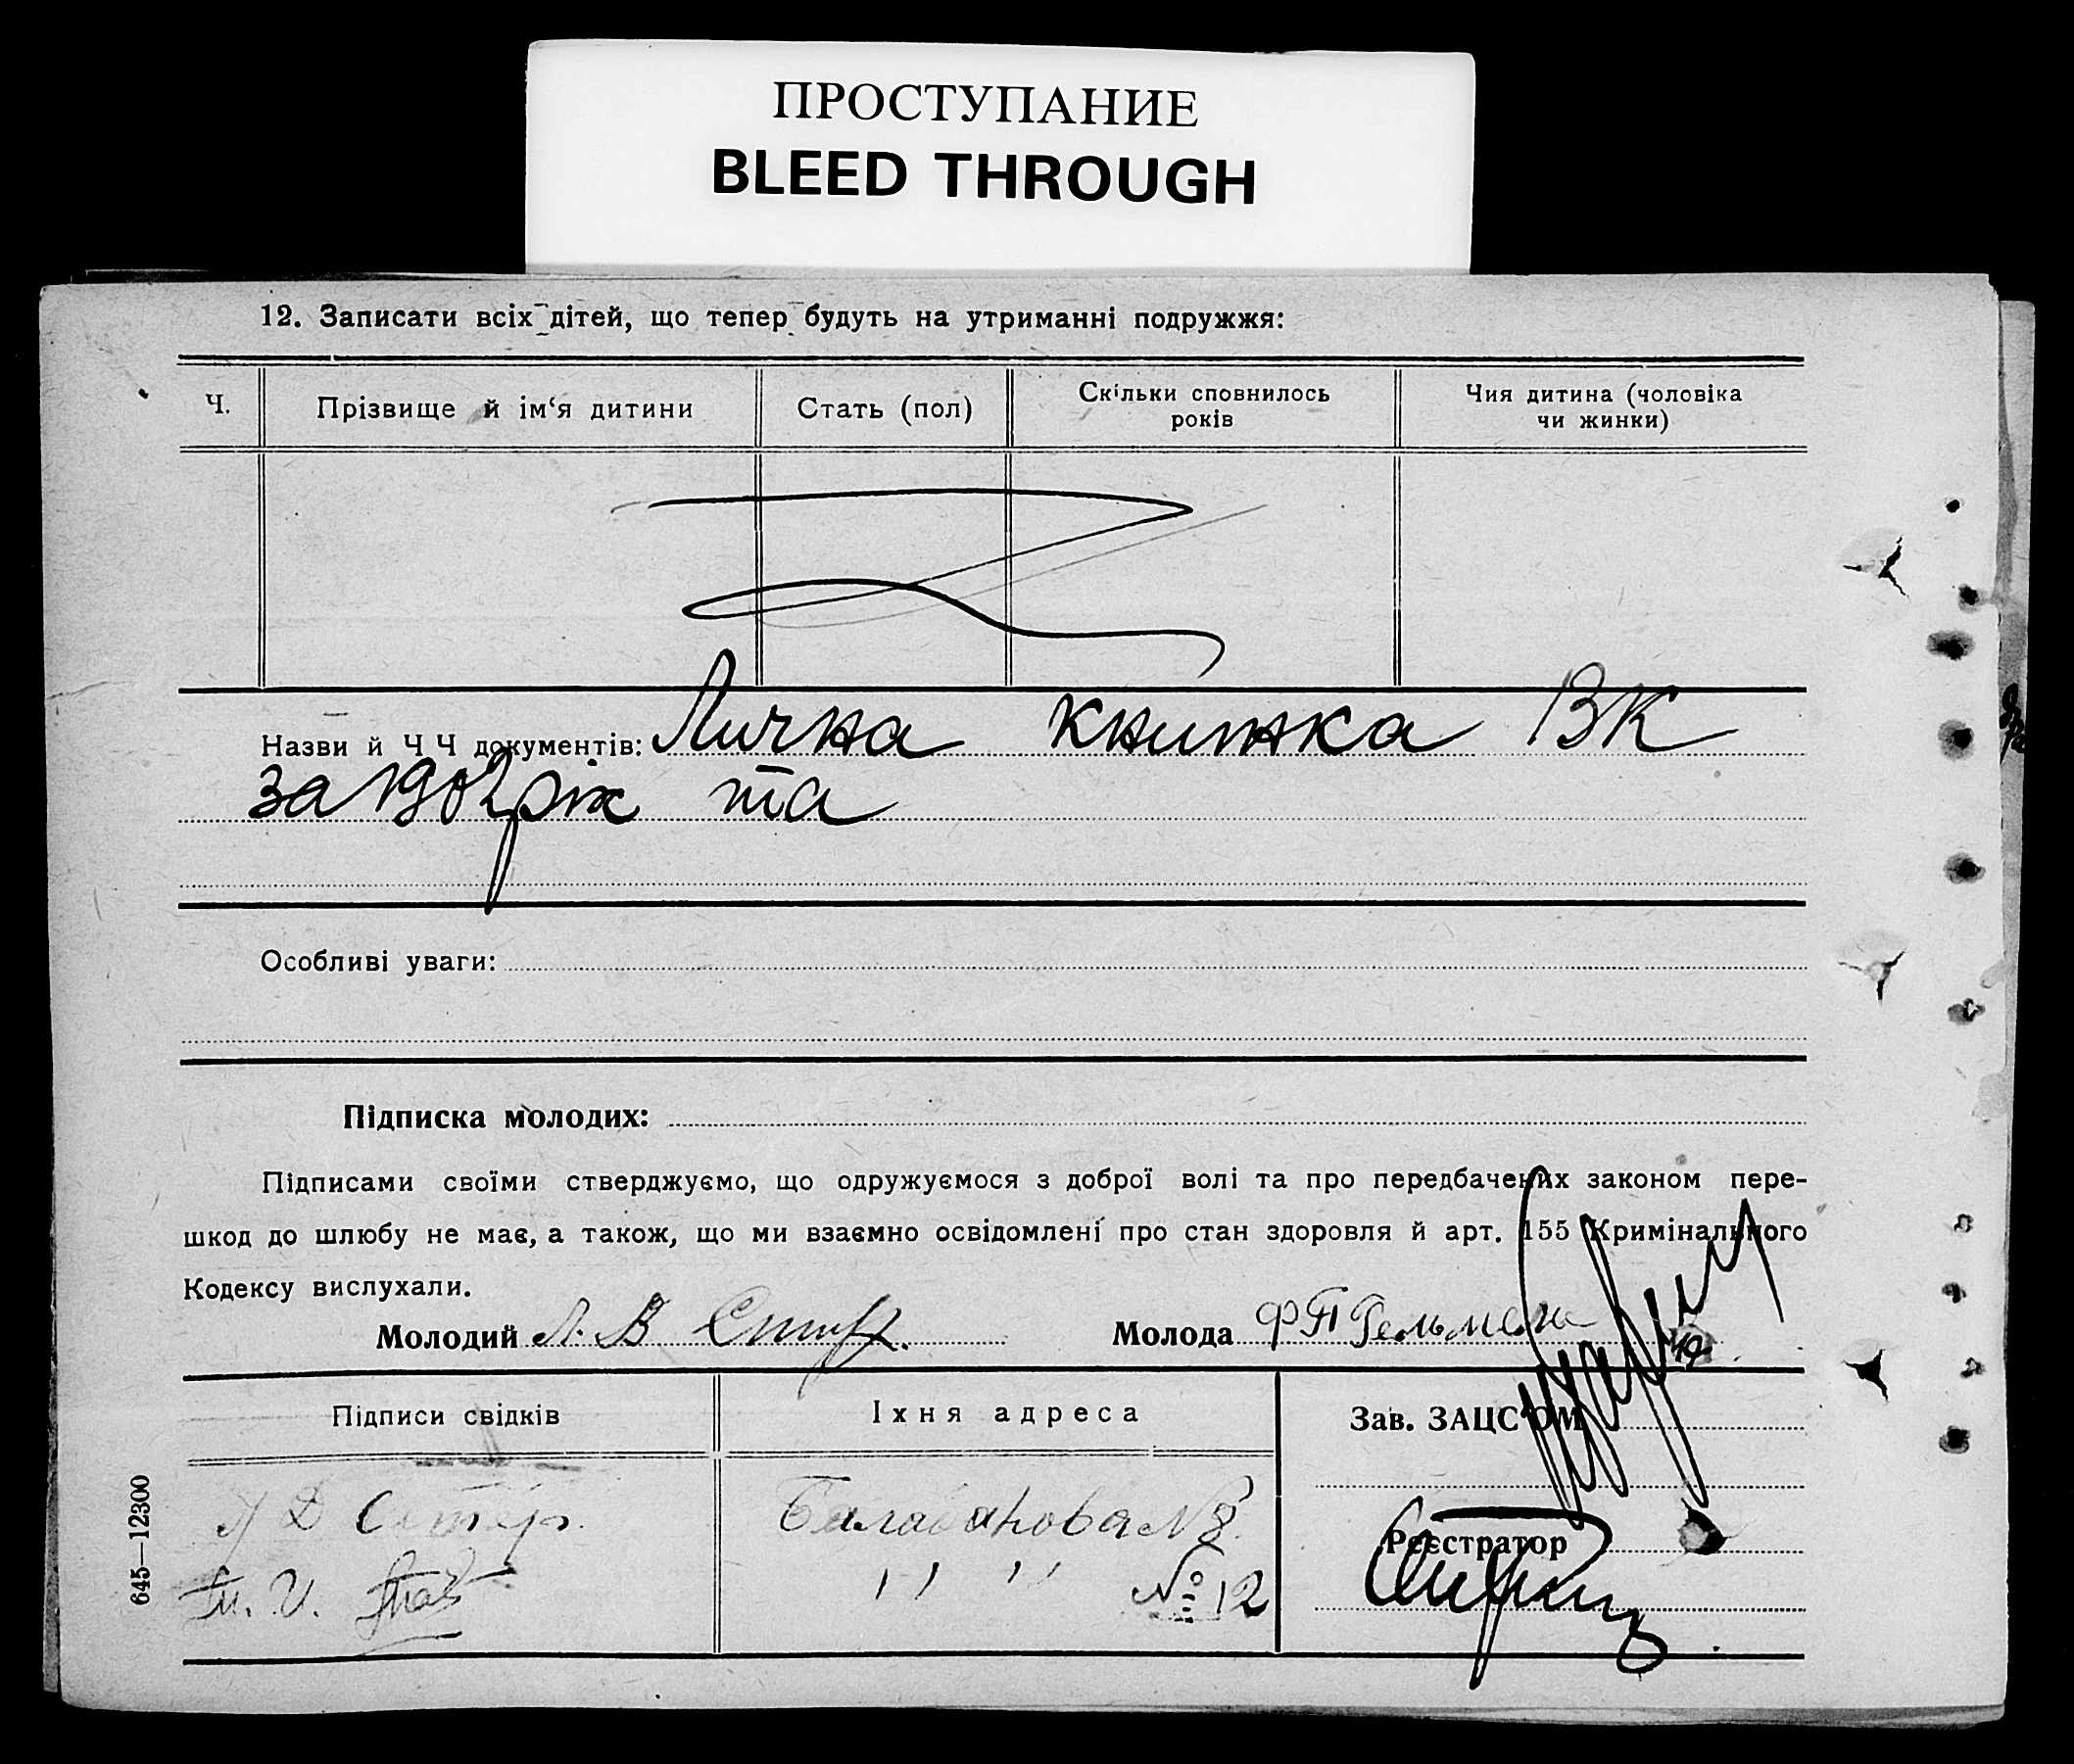 ПРОСТУПАНИЕ
BLEED THROUGH
12. Записати всіх дітей, що тепер будуть на утриманні подружжя:
Ч.
Прізвище й ім‘я дитини
Стать (пол)
Скільки сповнилось
років
Чия дитина (чоловіка
чи жинки)
Назви й Ч Ч документів: Лична книжка ВК
за 1902 рік та
Особливі уваги:
Підписка молодих:
Підписами своїми стверджуємо, що одружуємося з доброї волі та про передбачених законом пере-
шкод до шлюбу не має, а також, що ми взаємно освідомлені про стан здоровля й арт. 155 Кримінального
Кодексу вислухали.
Молодий Л. В
Молода ФП Гельман
Підписи свідків
Їхня адреса
Зав. ЗАЦС‘ОМ
Балабанова № 8.
Реєстратор
" " № 12
645—12300